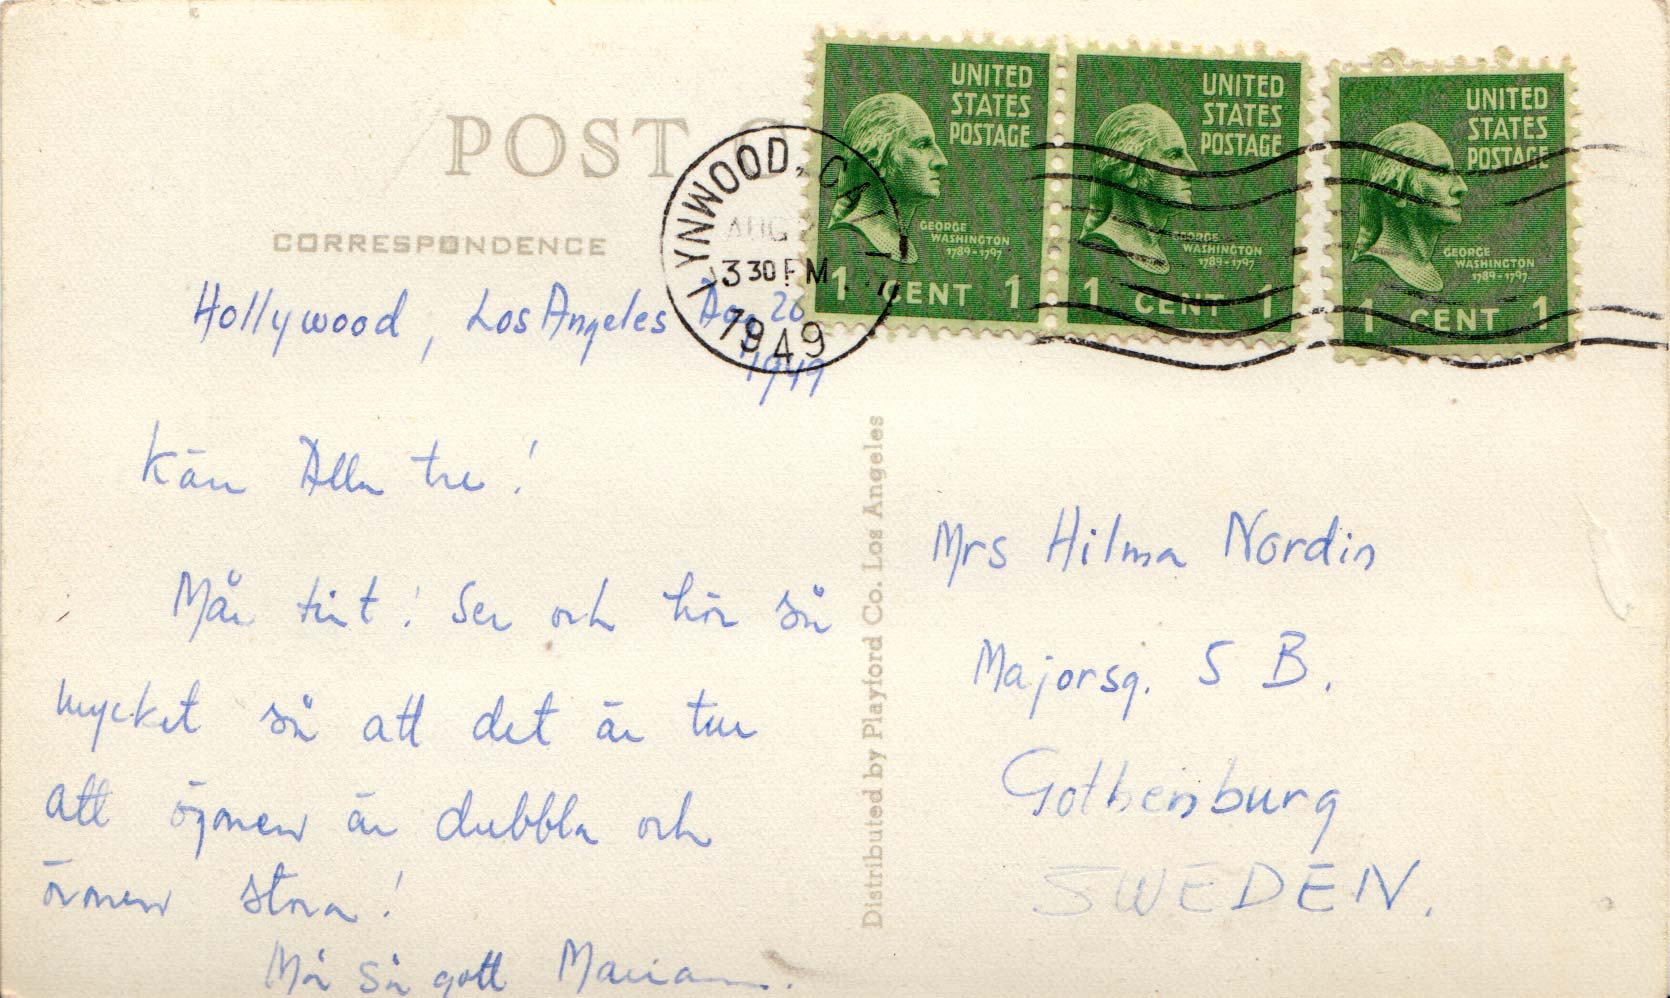 POST C
UNITED
STATES
POSTAGE
GEORGE
WASHINGTON
1789-1797
1 CENT 1
UNITED
STATES
POSTAGE
GEORGE
WASHINGTON
1789-1797
1 CENT 1
UNITED
STATES
POSTAGE
GEORGE
WASHINGTON
1789-1797
1 CENT 1
LYNWOOD, CALI
AUG
3 30 PM
1949
CORRESPONDENCE
Hollywood, Los Angeles 26
1949
Kära Alla tre!
Mår fint! Ser och hör så
mycket så att det är tur
att ögonen är dubbla och
öronen stora!
Må så gott
Distributed by Playford Co. Los Angeles
Mrs Hilma Nordin
Majorsg. 5 B.
Gothenburg
SWEDEN.